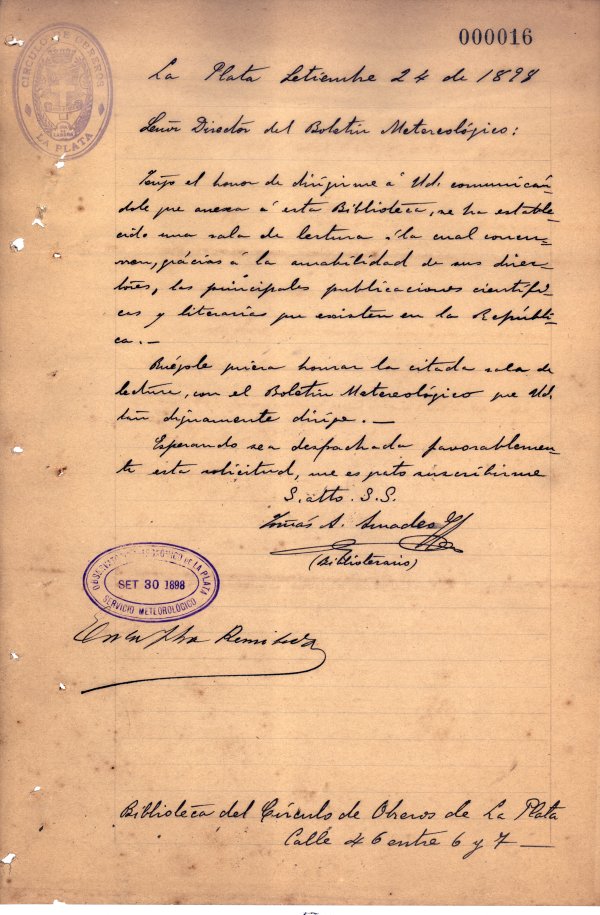 000016
CIRCULO DE OBREROS
LA PLATA
La Plata Setiembre 24 de 1898
Señor Director del Boletin Metereológico:
Tengo el honor de dirigirme á Ud. comunicán-
dole que anexa á esta Biblioteca, se ha estable-
cido una sala de lectura á la cual concur-
ren, grácias á la amabilidad de sus direc-
tores, las principales publicaciones científi-
cas y literarias que existen en la Repúbli-
ca. —
Ruégole quiera honrar la citada sala de
lectura, con el Boletin Metereológico que Ud.
tan dignamente dirige. —
Esperando sea despachada favorablemen-
te esta solicitud, me es grato suscribirme
S. atto. S.S.
Tomás A. Amadeo
(Bibliotecario)
OBSERVATORIO ASTRONOMICO DE LA PLATA
SET 30 1898
SERVICIO METEOROLÓGICO
Remitida
Biblioteca del Círculo de Obreros de La Plata
Calle 46 entre 6 y 7 —